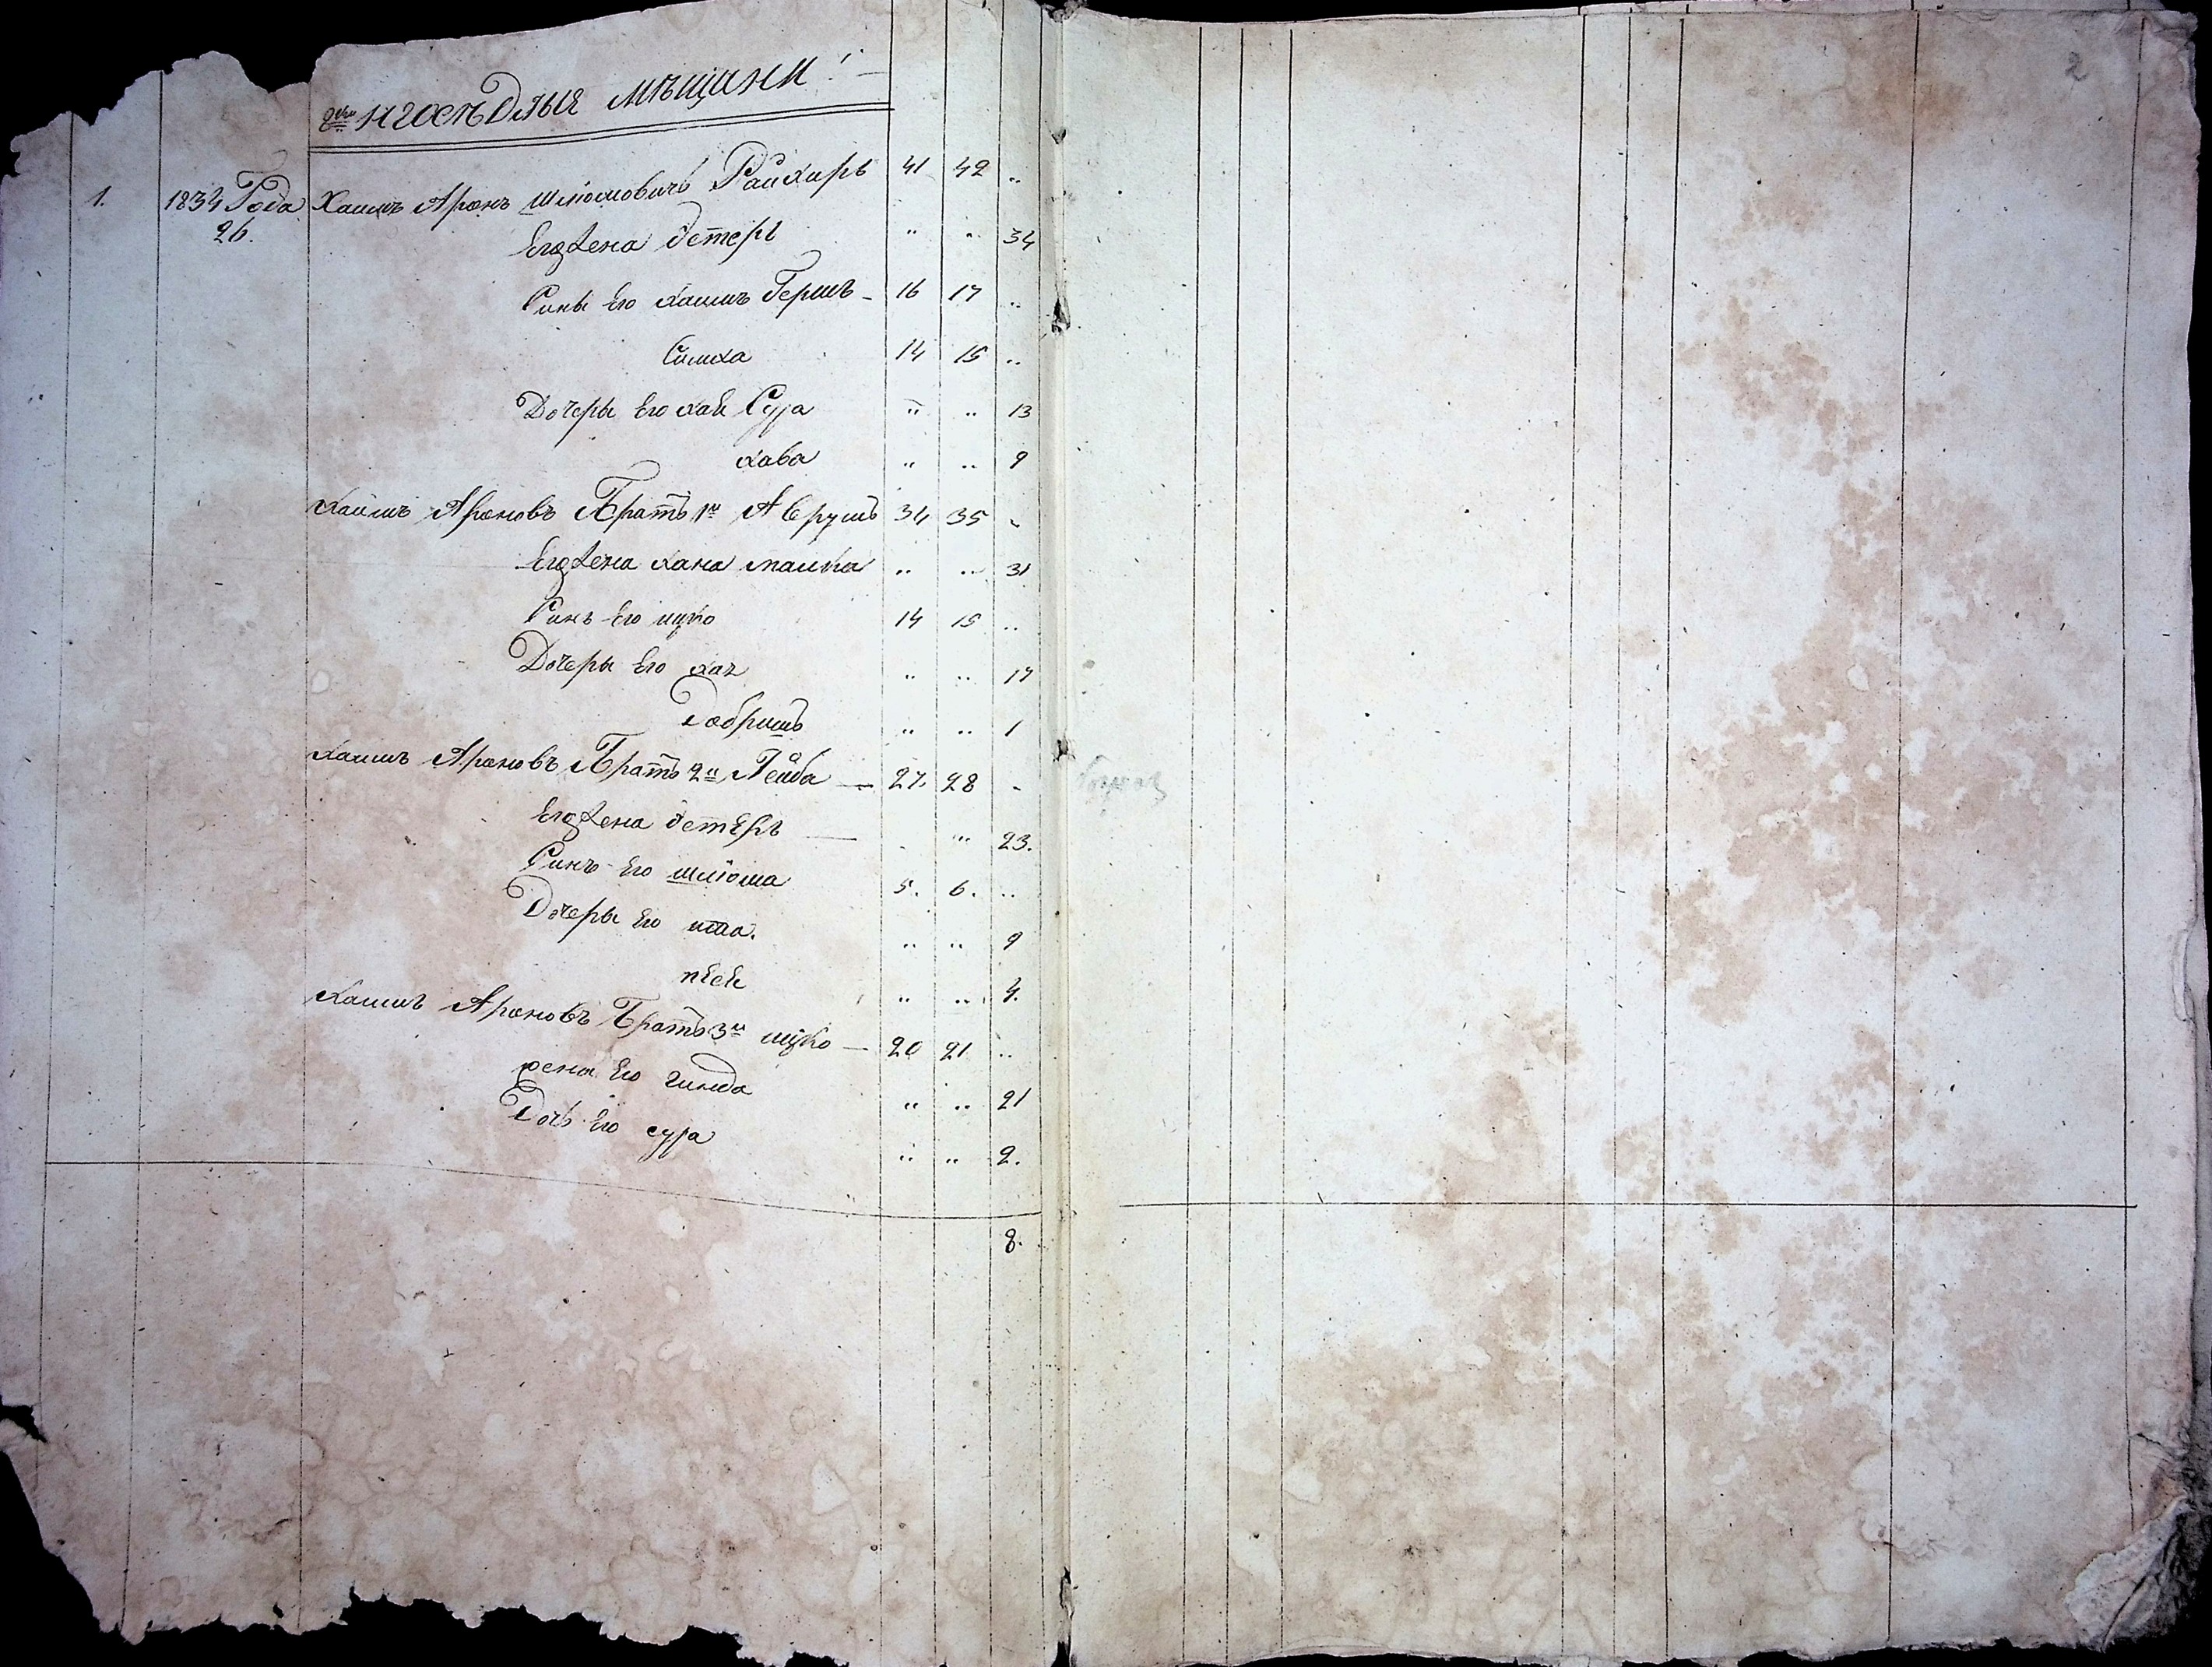 2
неосѣдлыя мѣщани
1. 1834 Года Хаимъ Аронъ Шліомовичъ Райхиръ 41 42 "
26.
Его жена Эстеръ " " 34
Сины Его Хаимъ Гершъ 16 17 "
Симха 14 15 "
Дочеры Его хая Сура " " 13
хава " " 9
Хаимъ Ароновъ Братъ 1й Аврумъ 34 35 "
Его жена хана малка " " 31
Синъ Его ицко 14 15 "
Дочеры Его хая " " 17
Добришъ " " 1
Хаимъ Ароновъ Братъ 2й Лейба 27. 28 "
Его жена Эстеръ " 23.
Синъ Его шліома 5. 6. "
Дочеры Его ита. " " 9
песя " " 4.
Хаимъ Ароновъ Братъ 3й ицко 20 21 "
жена Его гинда " " 21
Дочь Его сура " " 2.
8.